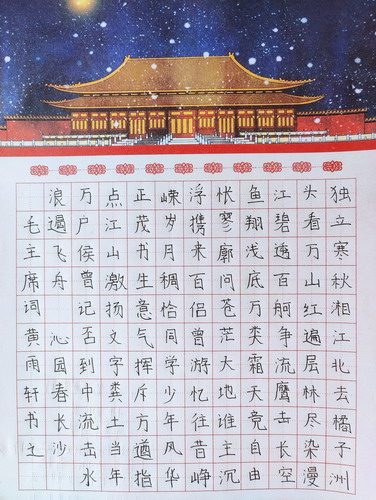 独立寒秋湘江北去橘子洲
头看万山红遍层林尽染漫
江碧透百舸争流鹰击长空
鱼翔浅底万类霜天竞自由
怅寥廓问苍茫大地谁主沉
浮携来百侣曾游忆往昔峥
嵘岁月稠恰同学少年风华
正茂书生意气挥斥方遒指
点江山激扬文字粪土当年
万户侯曾记否到中流击水
浪遏飞舟 沁园春长沙
毛主席词 黄雨轩书之